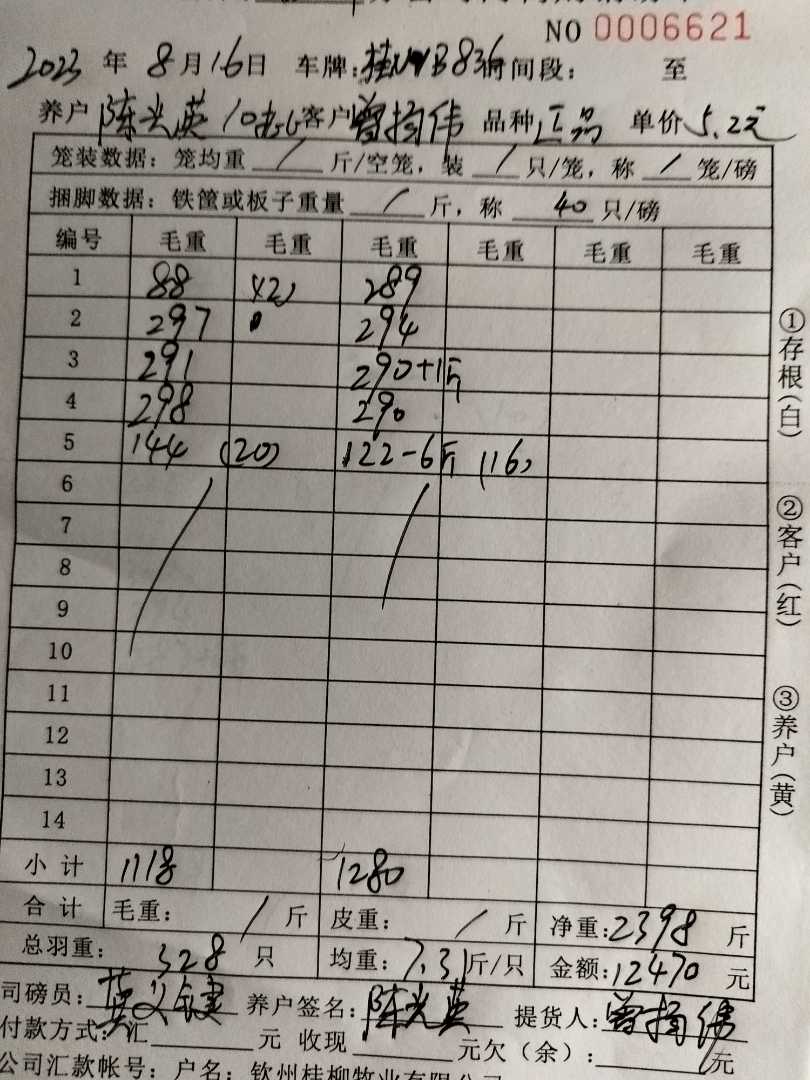 NO 0006621
2023 年 8 月 16 日 车牌: 836 时间段: 至
养户 陈兴英 10 客户 曾扬伟 品种 正品 单价 5.2元
笼装数据: 笼均重 / 斤/空笼, 装 / 只/笼, 称 / 笼/磅
捆脚数据: 铁筐或板子重量 / 斤, 称 40 只/磅
编号 毛重 毛重 毛重 毛重 毛重 毛重
1 88 (12) 289
2 297 294
3 291 290+1斤
4 298 290
5 144 (20) 122-6斤 (16)
6
7
8
9
10
11
12
13
14
小计 1118 1280
合计 毛重: / 斤 皮重: / 斤 净重: 2398 斤
总羽重: 328 只 均重: 7.31 斤/只 金额: 12470 元
司磅员: 养户签名: 陈兴英 提货人: 曾扬伟
付款方式: 汇 元 收现 元欠(余): 元
公司汇款帐号: 户名: 钦州桂柳牧业有限公司
①存根(白)
②客户(红)
③养户(黄)